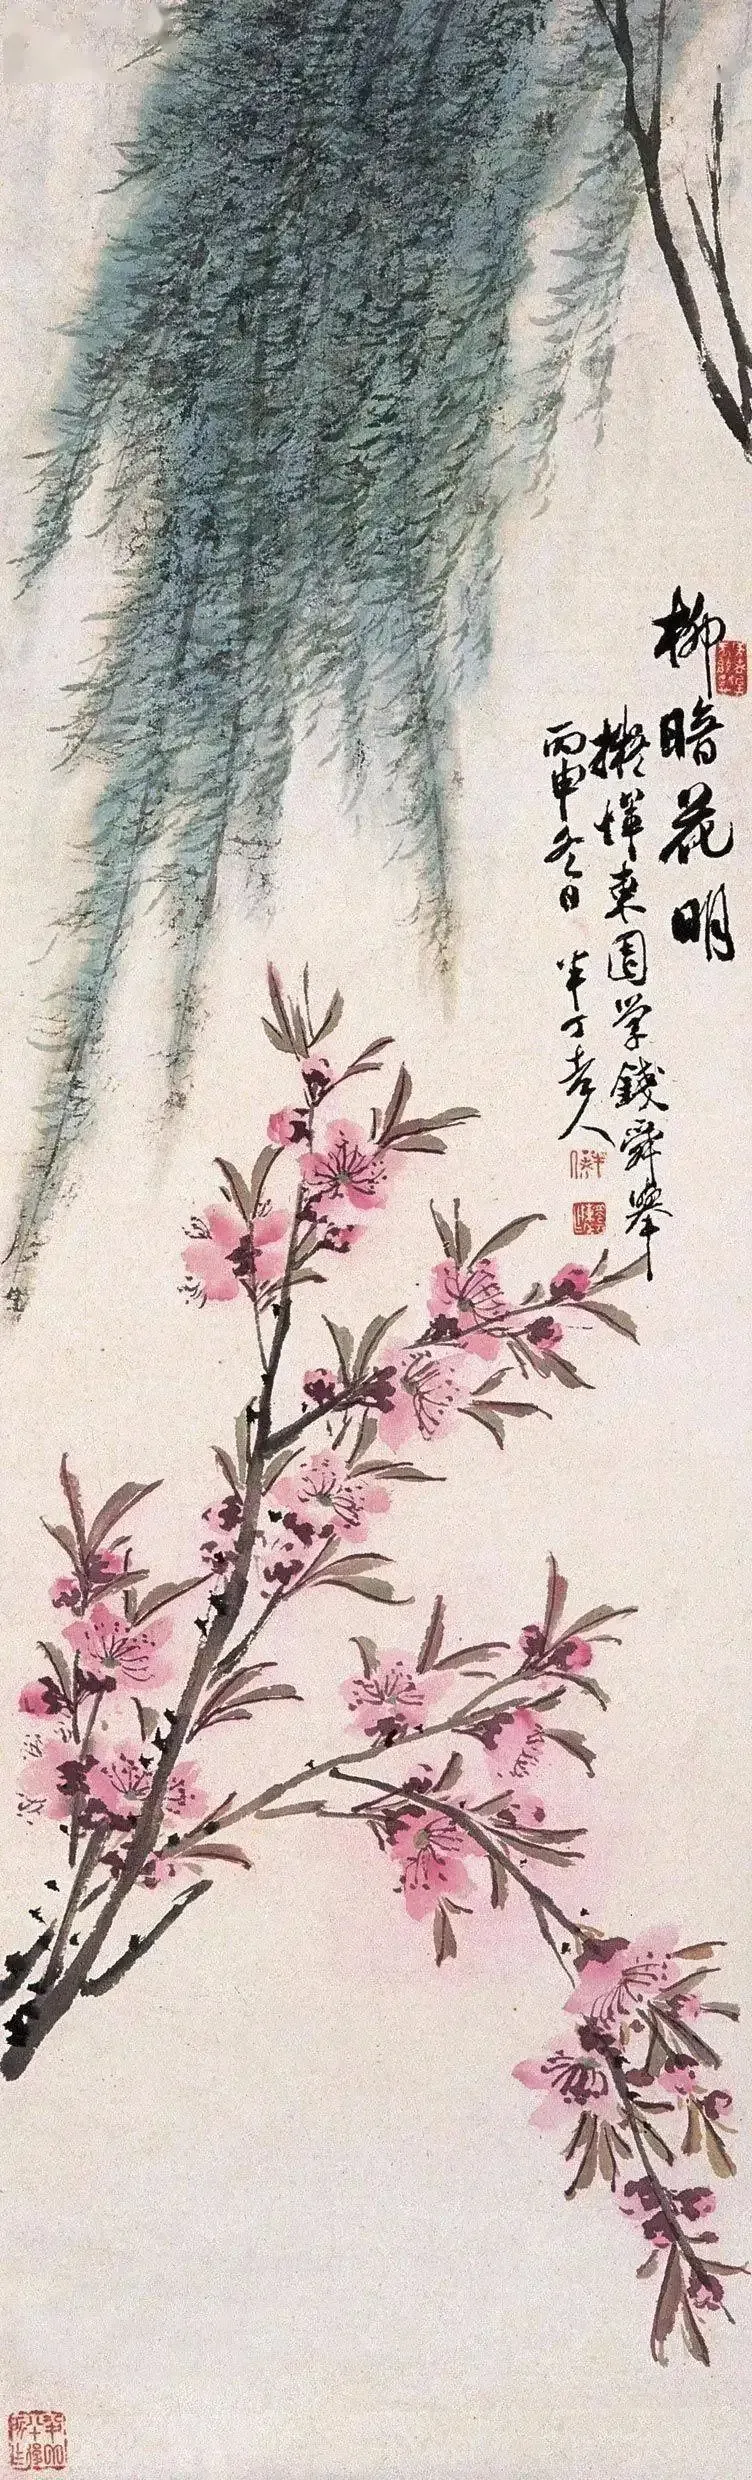 柳暗花明
擬惲東園學錢舜舉
丙申冬日 半丁老人